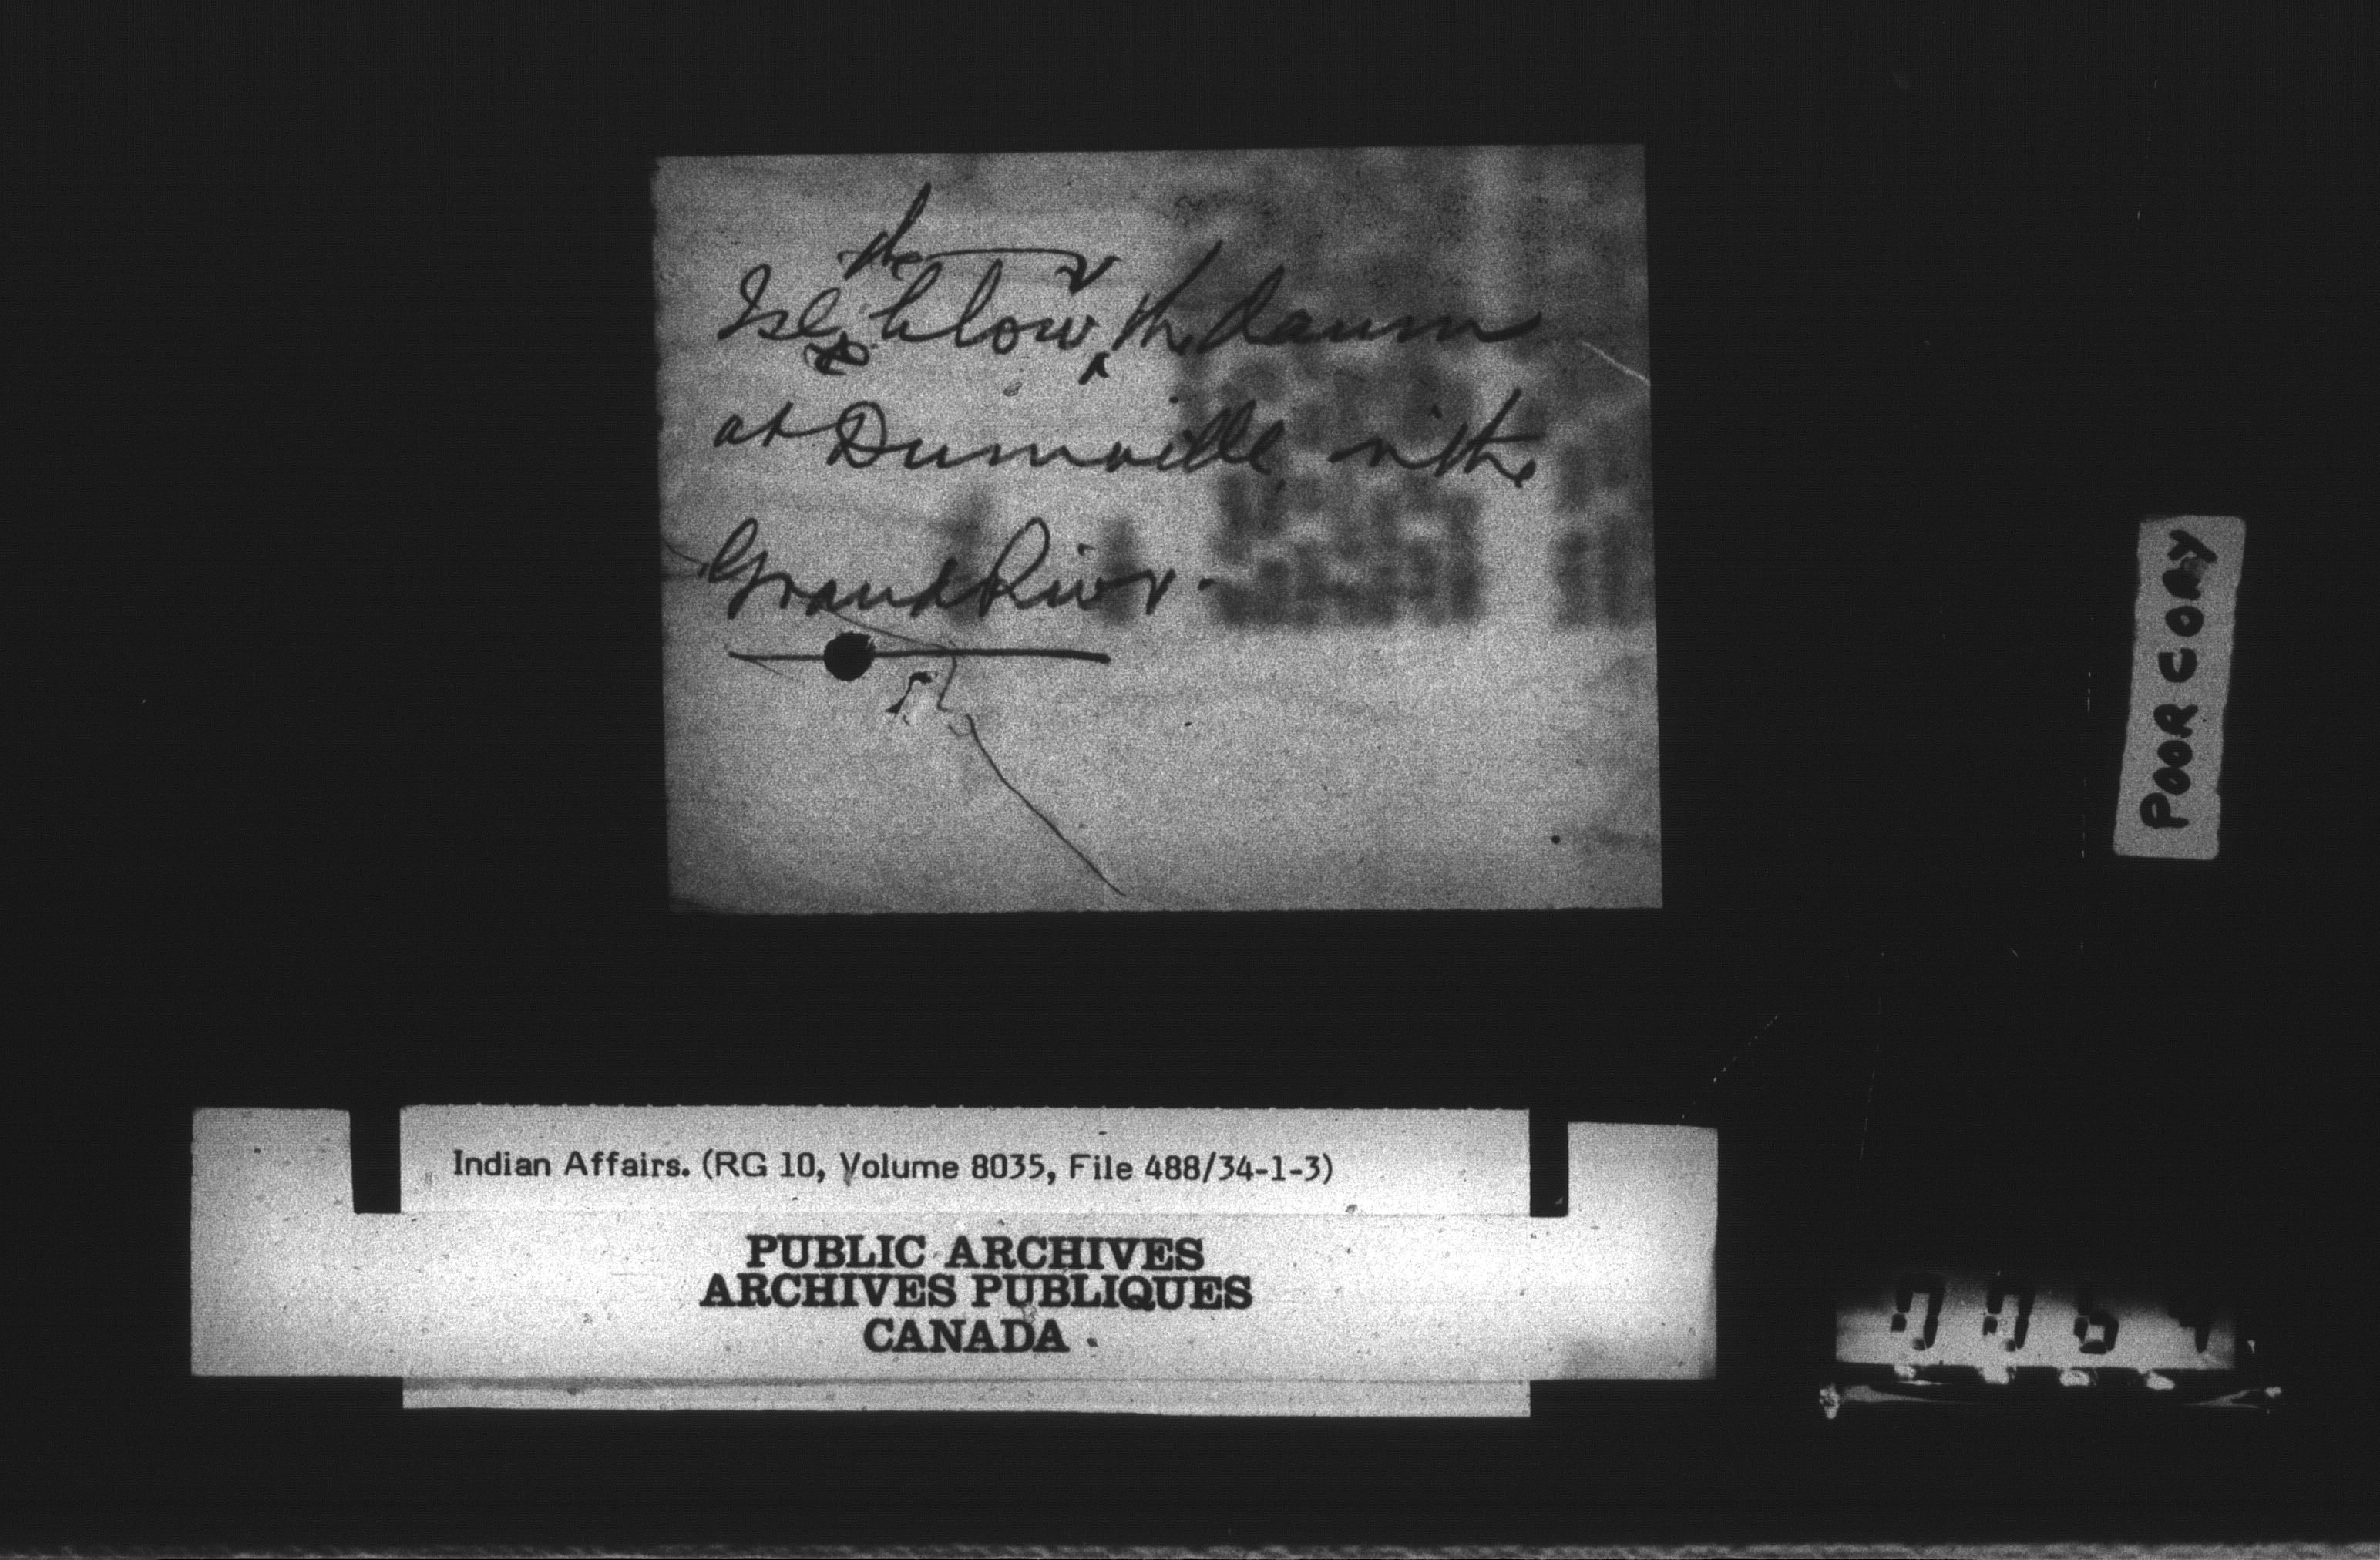 Isle below the damm
at Dunnville in the
Grand River.
POOR COPY
Indian Affairs. (RG 10, Volume 8035, File 488/34-1-3)
PUBLIC ARCHIVES
ARCHIVES PUBLIQUES
CANADA